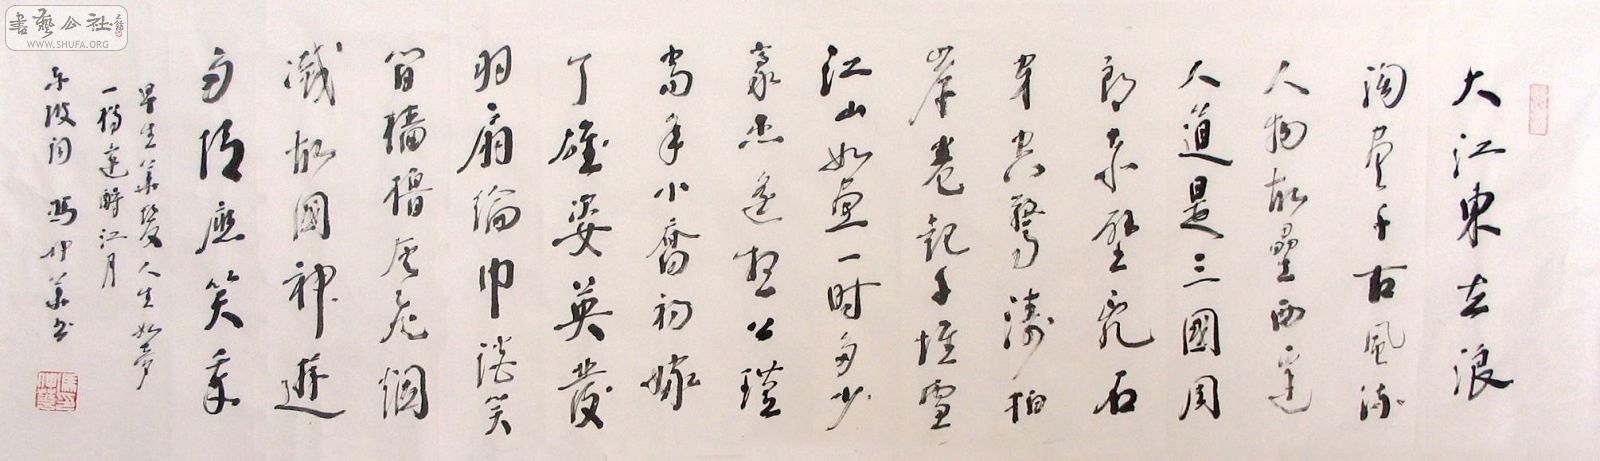 書藝公社
WWW.SHUFA.ORG
大江東去浪
淘盡千古風流
人物故壘西邊
人道是三國周
郎赤壁亂石
穿空驚濤拍
岸卷起千堆雪
江山如畫一時多少
豪杰遙想公瑾
當年小喬初嫁
了雄姿英發
羽扇綸巾談笑
間檣櫓灰飛煙
滅故國神遊
多情應笑我
早生華髮人生如夢
一樽還酹江月
東坡詞 馮仲華書